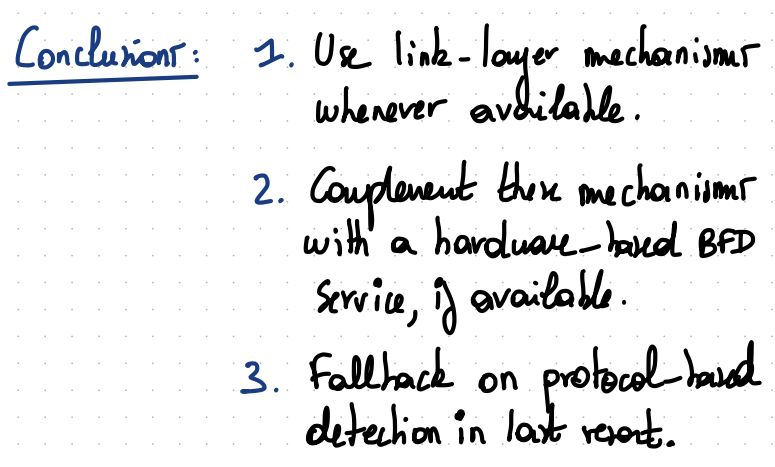 Conclusions: 1. Use link-layer mechanisms
whenever available.
2. Complement these mechanisms
with a hardware-based BFD
service, if available.
3. Fallback on protocol-based
detection in last resort.